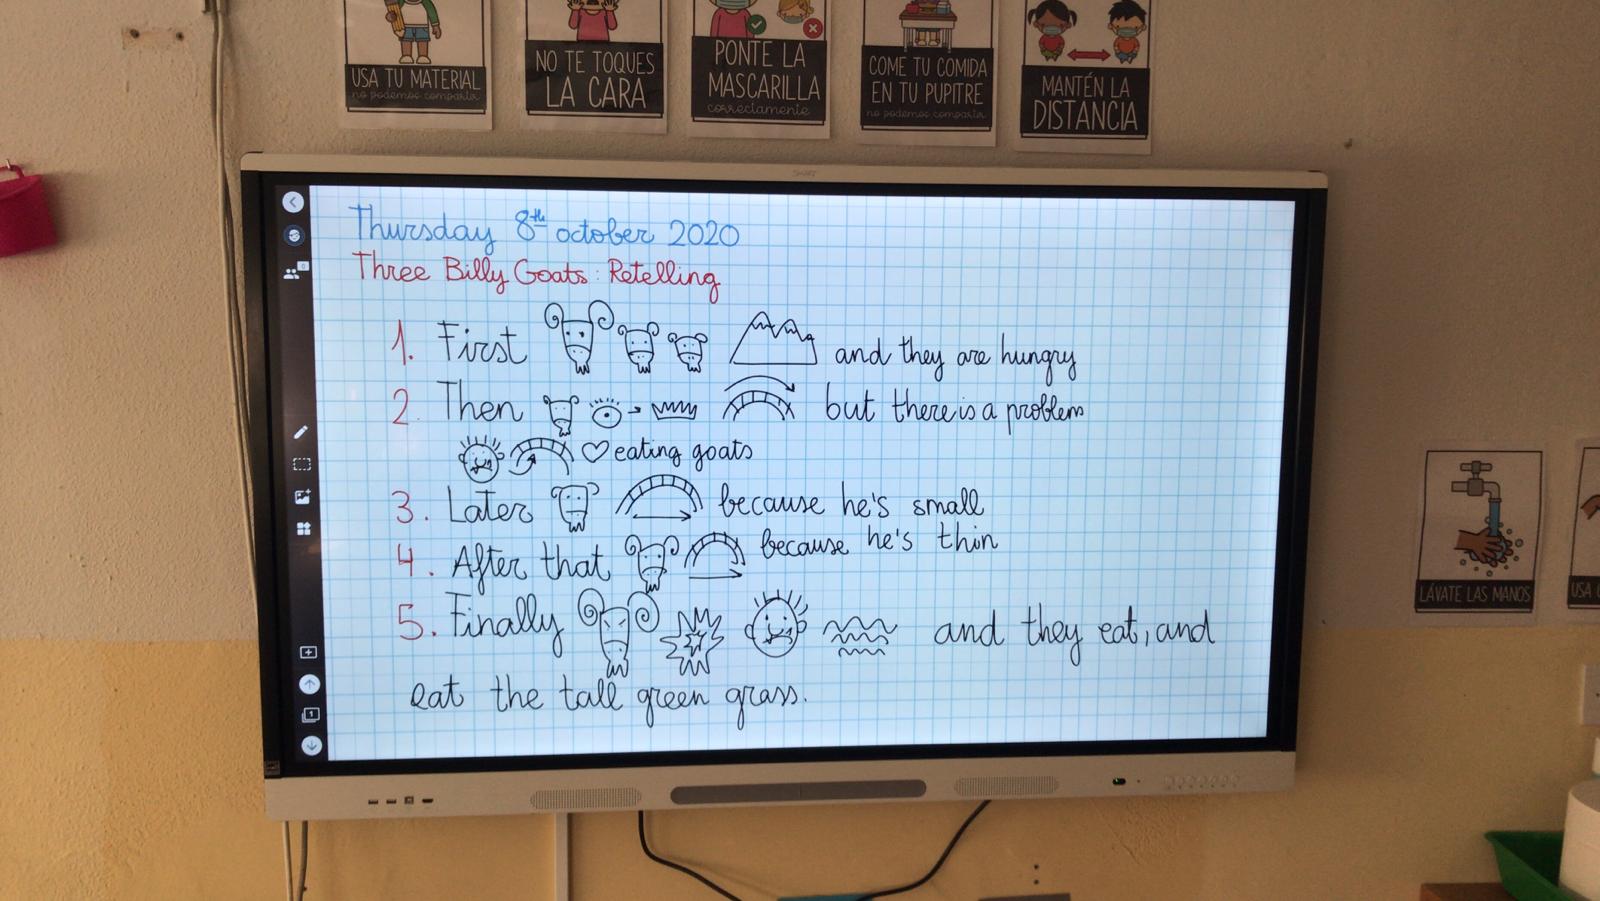 USA TU MATERIAL
no podemos compartir
NO TE TOQUES
LA CARA
PONTE LA
MASCARILLA
correctamente
COME TU COMIDA
EN TU PUPITRE
no podemos compartir
MANTÉN LA
DISTANCIA
SMART
Thursday 8th october 2020
Three Billy Goats: Retelling
1. First and they are hungry
2. Then but there is a problem
eating goats
3. Later because he's small
4. After that because he's thin
5. Finally and they eat, and
eat the tall green grass.
LÁVATE LAS MANOS
USA